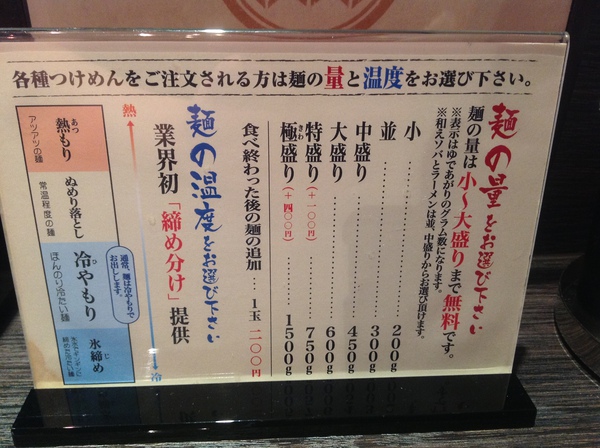 各種つけめんをご注文される方は麺の量と温度をお選び下さい。
麺の量をお選び下さい
麺の量は小～大盛りまで無料です。
※表示はゆであがりのグラム数になります。
※和えソバとラーメンは並、中盛りからお選び頂けます。
小 200g
並 300g
中盛り 450g
大盛り 600g
特盛り（＋一〇〇円） 750g
極盛り（＋四〇〇円） 1500g
きわ
食べ終わった後の麺の追加…1玉 二〇〇円
麺の温度をお選び下さい
業界初「締め分け」提供
熱
冷
通常、麺は冷やもりで
お出しします。
あつ
熱もり
アツアツの麺
ぬめり落とし
常温程度の麺
ひ
冷やもり
ほんのり冷たい麺
じ
氷締め
締めた冷たい麺